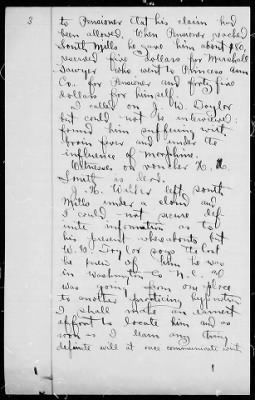 3
to Pensioner that his claim had
been allowed. When Pensioner reached
South Mills he gave him about $50,
reserved five dollars for Marshall
Sawyer who went to Princess Ann
Co. for Pensioner and forty five
dollars for himself.
I called on J. W. Doylor
but could not be interviewed;
found him suffering with
brain fever and under the
influence of morphine.
Witnesses on voucher
Smith is dead.
J. H. Wilber left South
Mills under a cloud and
I could not secure def
inite information as to
his present whereabouts but
W. S. says the last
he knew of him he was
in Washington Co N.C. and
was going from one place
to another practicing hypnotism
I shall make an earnest
effort to locate him and as
soon as I learn any thing
definite will at once communicate with